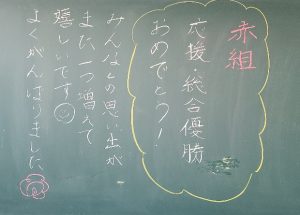 赤組
応援・総合優勝
おめでとう！
みんなとの思い出が
また一つ増えて
嬉しいです
よくがんばりました